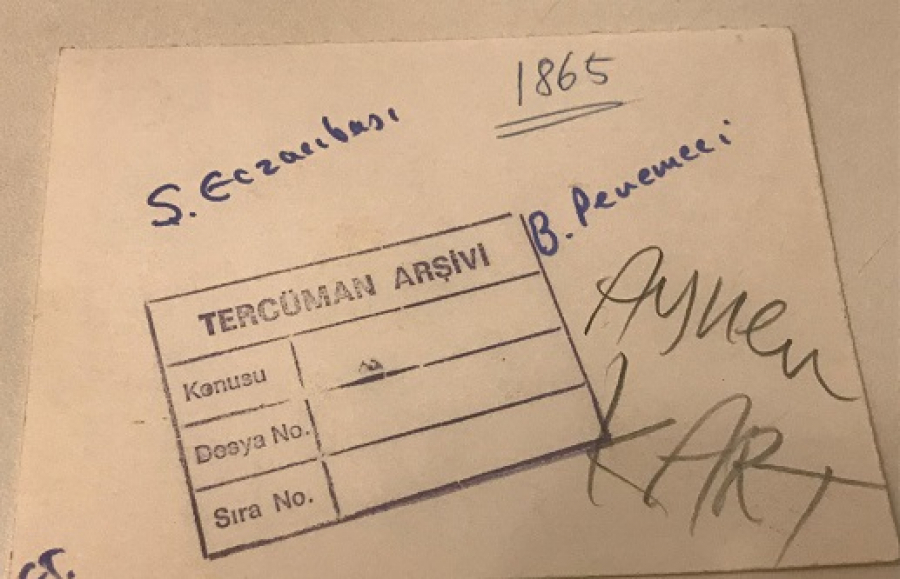 1865
S. Eczacıbaşı
B. Penemeci
TERCÜMAN ARŞİVİ
Konusu
Dosya No.
Sıra No.
Aynen
KART
CT.